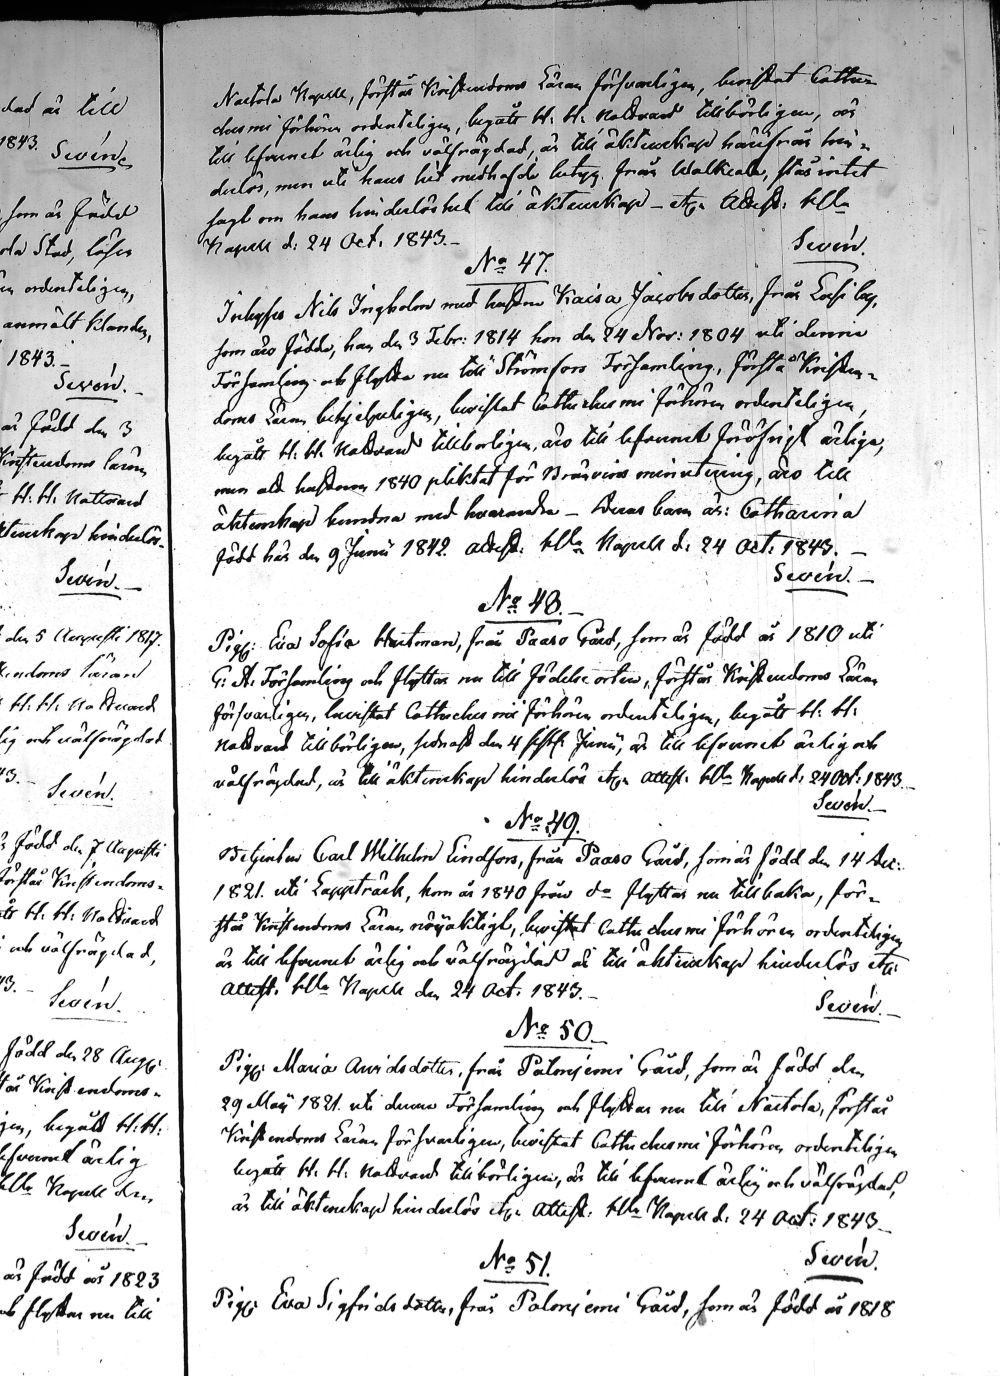 dad är till
1843.
Sevén.
som är född
Stad, läser
ordenteligen,
anmält
1843.
Sevén.
är född den 3
Kristendoms läran
H. H. Nattvard
hinderlös
Sevén.
den 5 Augusti 1817.
läran
H. H. Nattvard
lig och välfrägdad
43.
Sevén.
född den 7 Augusti
förstår Kristendoms-
H. H. Nattvard
och välfrägdad,
43.
Sevén.
född den 28 Aug:
Kristendoms-
begått H: H:
ärlig
Kapell den
Sevén.
är född år 1823
och flyttar nu till
Nastola Kapell, förstår Kristendoms Läran försvarligen, bevistat Cathe-
chesmi förhören ordenteligen, begått H. H. Nattvard tillbörligen, är
till lefvernet ärlig och välfrägdad, är till äktenskap härifrån hin-
derlös, men uti hans hit medhafde betyg från Walkeala, står intet
sagt om hans hinderlöshet till äktenskap _ Attest:
Kapell d: 24 Oct: 1843._
Sevén.
No 47.
Nils Ingholm med hustru Kaisa Jacobsdotter, från
som äro födde, han den 3 Febr: 1814 hon den 24 Nov: 1804 uti denna
Församling och flytta nu till Strömfors Församling, förstå Kristen-
doms Läran behjelpeligen, bevistat Cathechesmi förhören ordenteligen,
begått H. H. Nattvard tillbörligen, äro till lefvernet föröfrigt ärliga,
men 1840 pliktat för Bränvins minutering, äro till
äktenskap bundna med hvarandra _ Deras barn är: Catharina
född här den 9 Junii 1842. Attest: Kapell d: 24 Oct: 1843. _
Sevén. _
No 48. _
Pig: Eva Sofia Hartman, från Paaso Gård, som är född år 1810 uti
Församling och flyttar nu till födelse orten, förstår Kristendoms Läran
försvarligen, bevistat Cathechesmi förhören ordenteligen, begått H: H:
Nattvard tillbörligen, sednast den 4 Junii, är till lefvernet ärlig och
välfrägdad, är till äktenskap hinderlös Attest. Kapell d: 24 Oct: 1843._
Sevén._
No 49.
Betjenten Carl Wilhelm Lindfors, från Paaso Gård, som är född den 14 Dec:
1821. uti Lappträsk, kom år 1840 från do flyttar nu tillbaka, för-
står Kristendoms Läran nöjaktigt, bevistat Cathechesmi förhören ordenteligen
är till lefvernet ärlig och välfrägdad är till äktenskap hinderlös
Attest. Kapell den 24 Oct: 1843._
Sevén._
No 50._
Pig: Maria Arvidsdotter, från Palonjemi Gård, som är född den
29 Maij 1821. uti denna Församling och flyttar nu till Nastola, förstår
Kristendoms Läran försvarligen, bevistat Cathechesmi förhören ordenteligen
begått H. H. Nattvard tillbörligen, är till lefvernet ärlig och välfrägdad,
är till äktenskap hinderlös Attest. Kapell d. 24 Oct: 1843._
Sevén.
No 51.
Pig: Eva Sigfridsdotter, från Palonjemi Gård, som är född år 1818